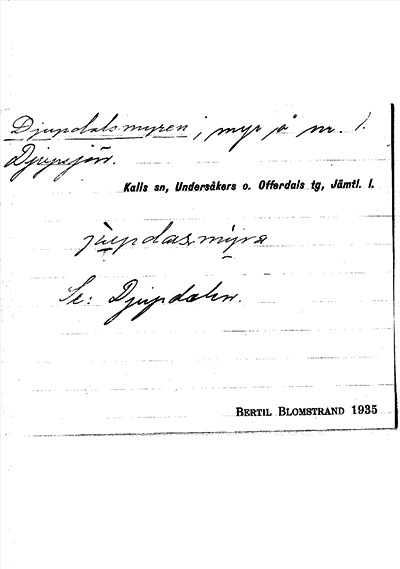 Djupdalsmyren, myr å nr. 1.
Djupsjön.
Kalls sn, Undersåkers o. Offerdals tg, Jämtl. l.
jupdasmyra
Se: Djupdalen.
BERTIL BLOMSTRAND 1935